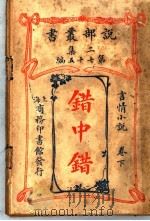 說部叢書
二集
第七十五編
言情小說 卷下
錯中錯
上海
商務印書館發行